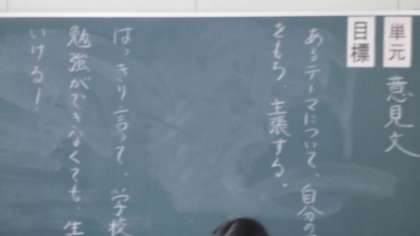 単元 意見文
目標
あるテーマについて、自分の
をもち、主張する。
はっきり言って、学校
勉強ができなくても、生
いける！